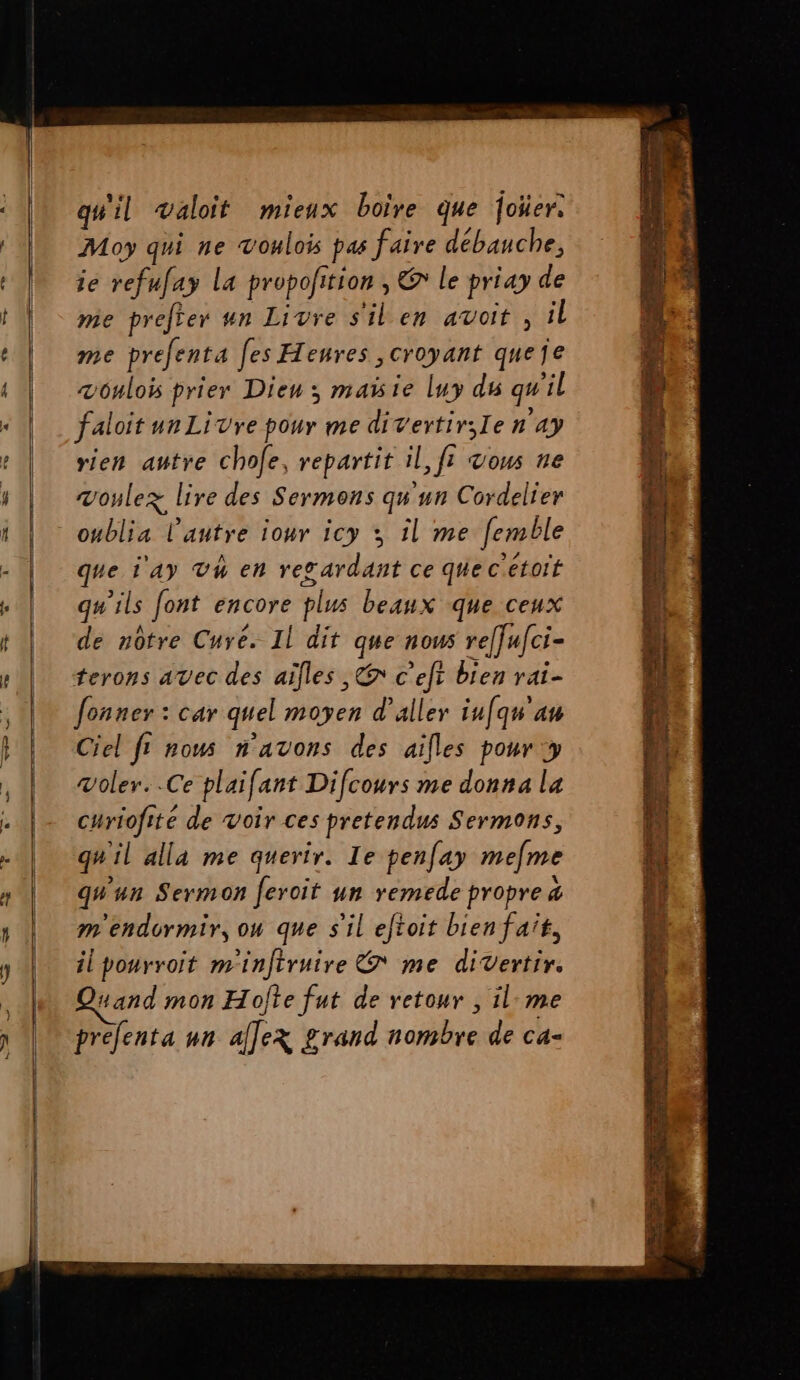 qu'il valoit mieux boire que joüer.
Moy qui ne voulois pas faire débauche,
ie refuſay la propoſition, & le priay de
me preſter un Livre s'il en avoit, il
me preſenta ſes Heures, croyant que je
voulois prier Dieu; mais ie luy dis qu'il
faloit un Livre pour me divertir; Ie n'ay
rien autre choſe, repartit il, ſi vous ne
voulez lire des Sermons qu'un Cordelier
oublia l'autre iour icy; il me ſemble
que i'ay vû en regardant ce que c'étoit
qu'ils ſont encore plus beaux que ceux
de nôtre Curé. Il dit que nous reſſuſci-
terons avec des aiſles, & c'eſt bien rai-
ſonner: car quel moyen d'aller iuſqu'au
Ciel ſi nous n'avons des aiſles pour y
voler. Ce plaiſant Diſcours me donna la
curioſité de voir ces pretendus Sermons,
qu'il alla me querir. Ie penſay meſme
qu'un Sermon ſeroit un remede propre à
m'endormir, ou que s'il eſtoit bien fait,
il pourroit m'inſtruire & me divertir.
Quand mon Hoſte fut de retour, il me
preſenta un aſſez grand nombre de ca-